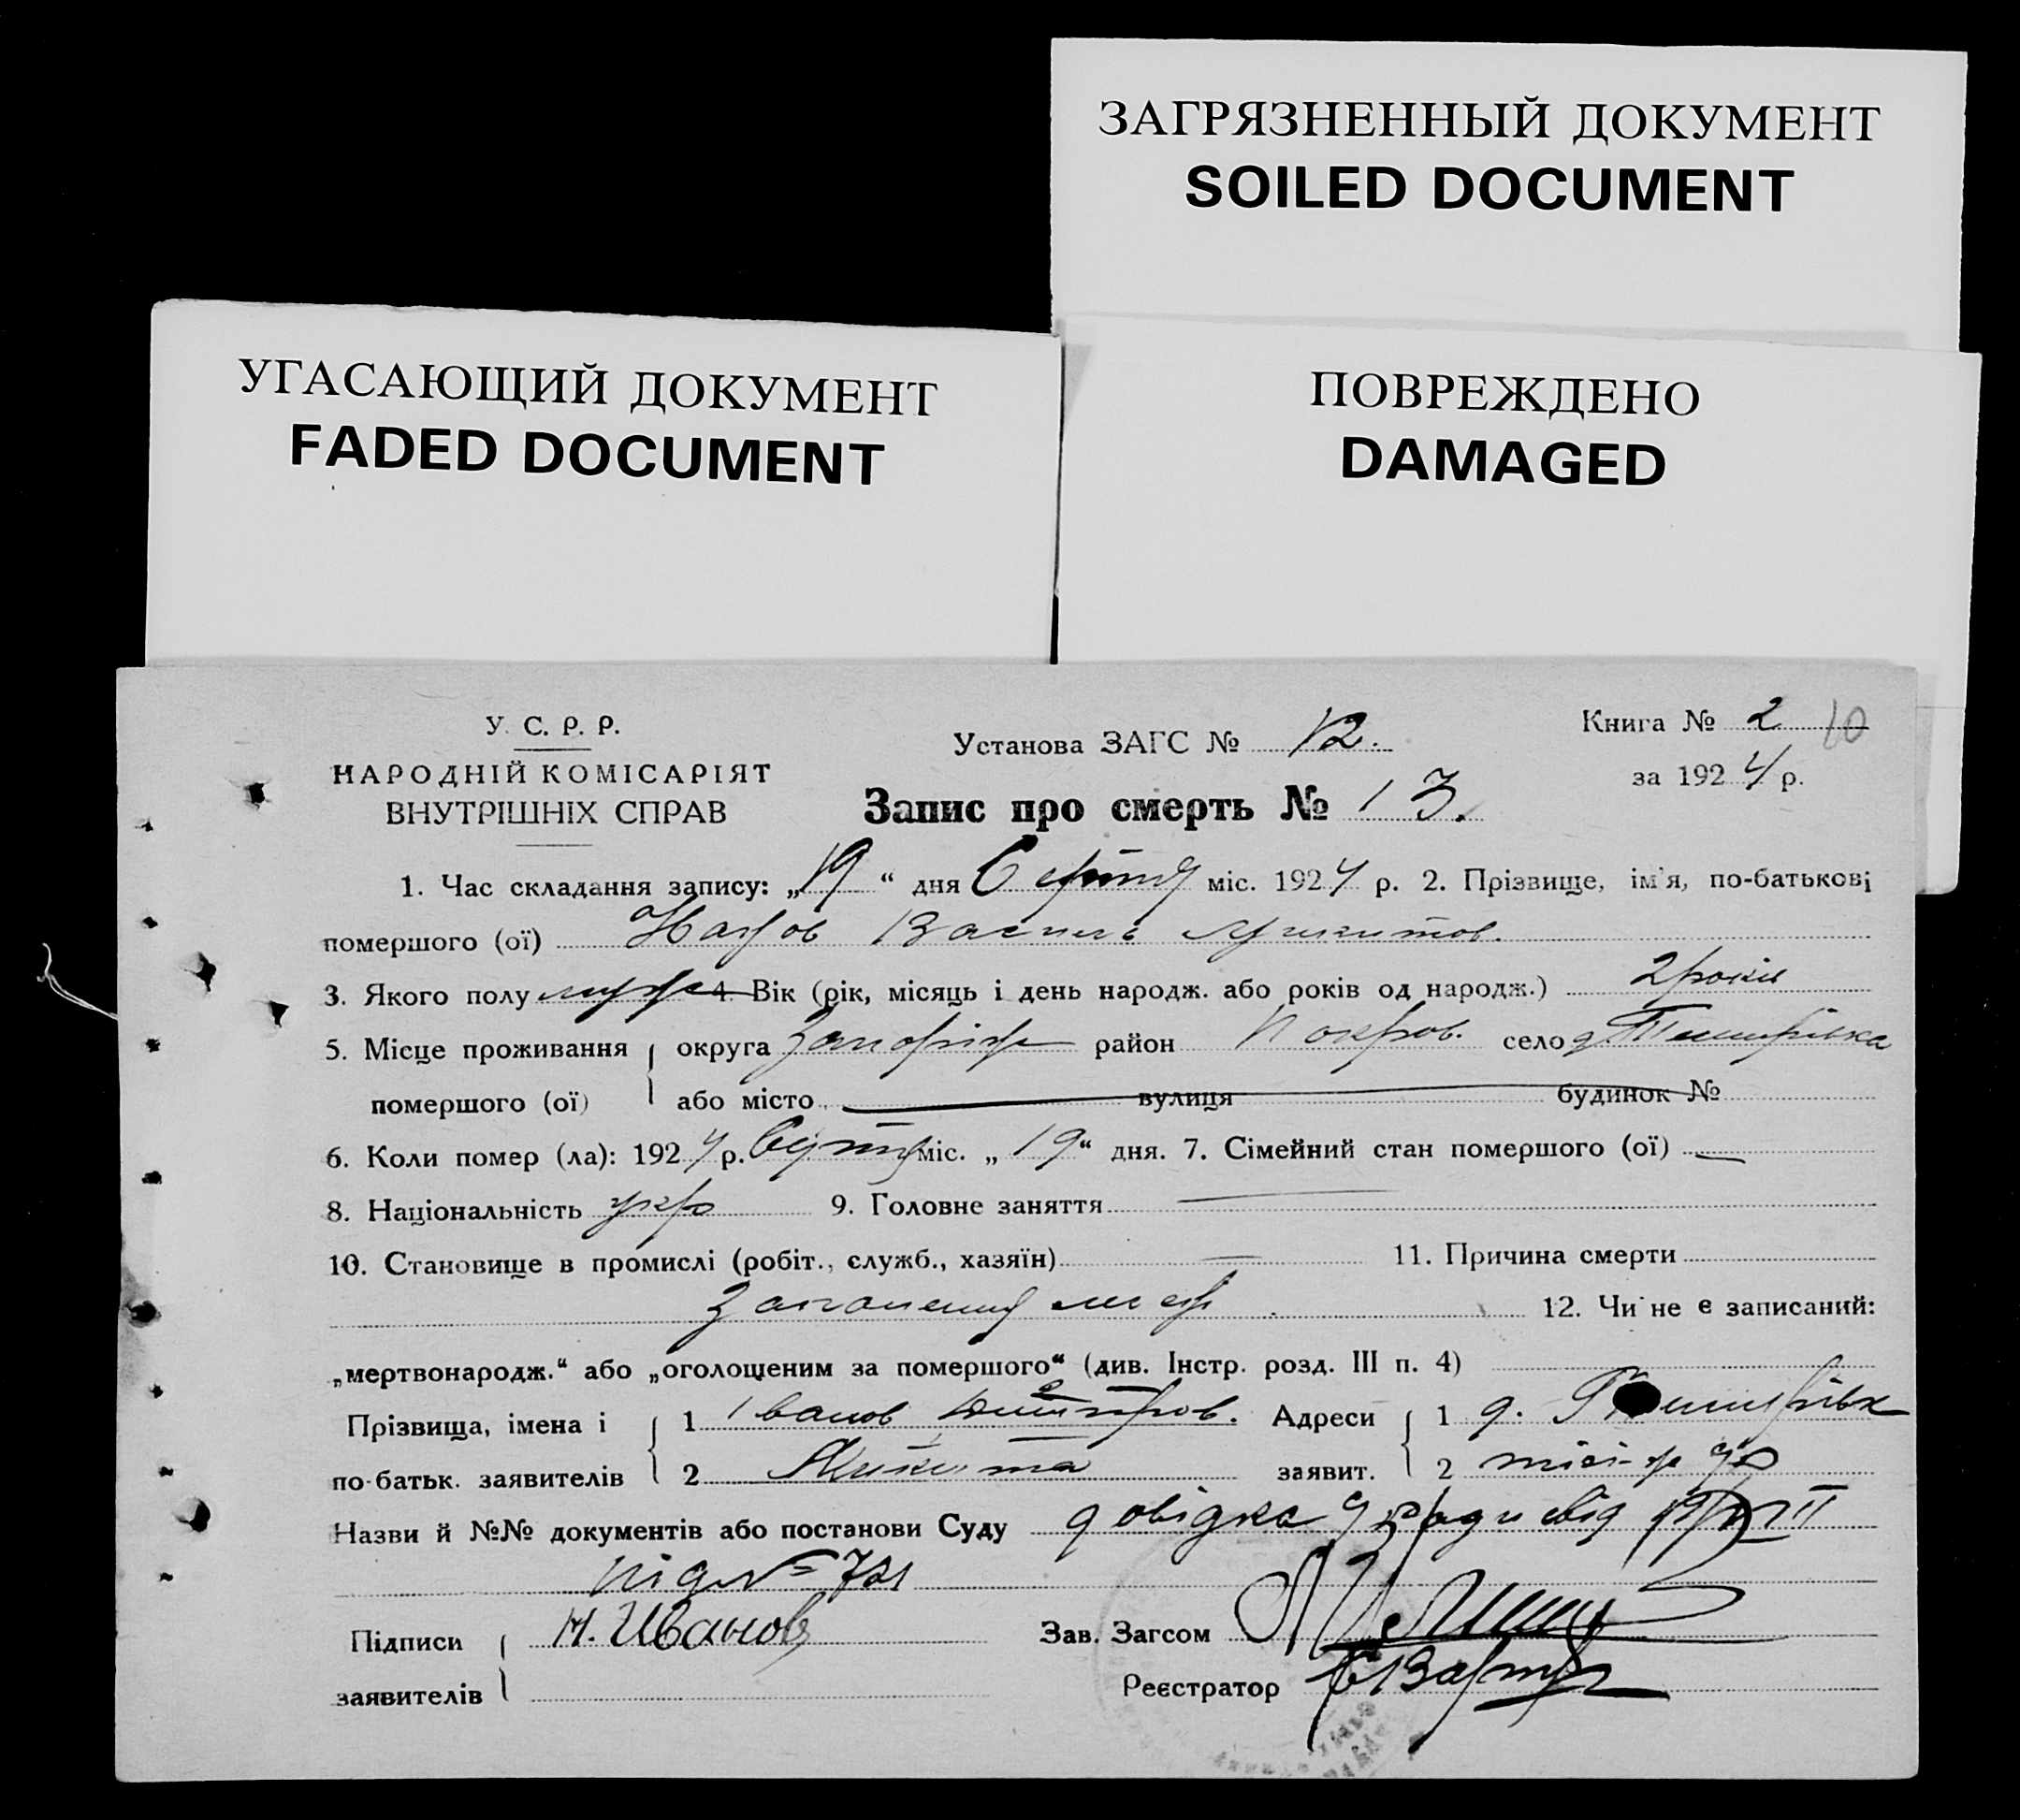 ЗАГРЯЗНЕННЫЙ ДОКУМЕНТ
SOILED DOCUMENT
УГАСАЮЩИЙ ДОКУМЕНТ
FADED DOCUMENT
ПОВРЕЖДЕНО
DAMAGED
У. С. Р. Р.
НАРОДНІЙ КОМІСАРІЯТ
ВНУТРІШНІХ СПРАВ
Установа ЗАГС № 12.
Книга № 2 10
за 1924 р.
Запис про смерть № 13.
1. Час складання запису: „19“ дня Серпня міс. 1924 р. 2. Прізвище, ім'я, по-батькові
помершого (ої) Василь
3. Якого полу 4. Вік (рік, місяць і день народж. або років од народж.) 2 роки
5. Місце проживання округа Запоріж район Покров. село
помершого (ої) або місто вулиця будинок №
6. Коли помер (ла): 1924 р. Серпня міс. „19“ дня. 7. Сімейний стан помершого (ої) —
8. Національність укр 9. Головне заняття —
10. Становище в промислі (робіт., служб., хазяїн) — 11. Причина смерти
12. Чи не є записаний:
„мертвонародж.“ або „оголошеним за помершого“ (див. Інстр. розд. III п. 4)
Прізвища, імена і 1 Іванов Адреси 1 д.
по-батьк. заявителів 2 Микита заявит. 2
Назви й №№ документів або постанови Суду довідка від
під №
Підписи Н. Иванов Зав. Загсом
заявителів Реєстратор